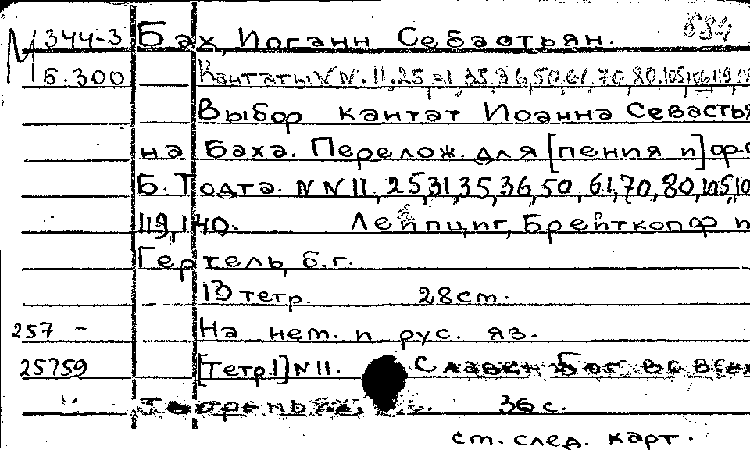 М 344-3 Бах, Иоганн Себастьян. 684
Б.300 Кантаты NN. 11, 25, 31, 35, 36, 50, 61, 70, 80, 105, 106, 119,
Выбор кантат Иоанна Севастья
на Баха. Перелож. для [пения и] фо
Б. Тодта. NN 11, 25, 31, 35, 36, 50, 61, 70, 80, 105, 10
119, 140. Лейпциг, Брейткопф и
Гертель, б.г.
13 тетр. 28 см.
257 - На нем. и рус. яз.
25759 [Тетр 1] N 11. Славен Бог во всех
36 с.
см. след. карт.